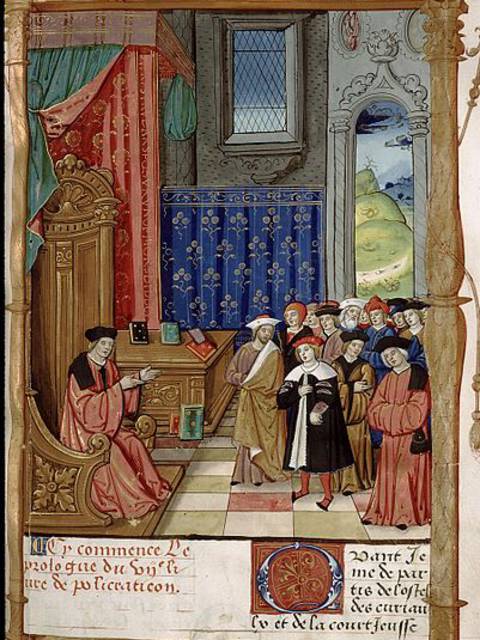 Cy commence le
prologue du vije li
ure de policraticon.
Quant Je
me de par
tis de lostel
des curiau
lx et de la court Jousse